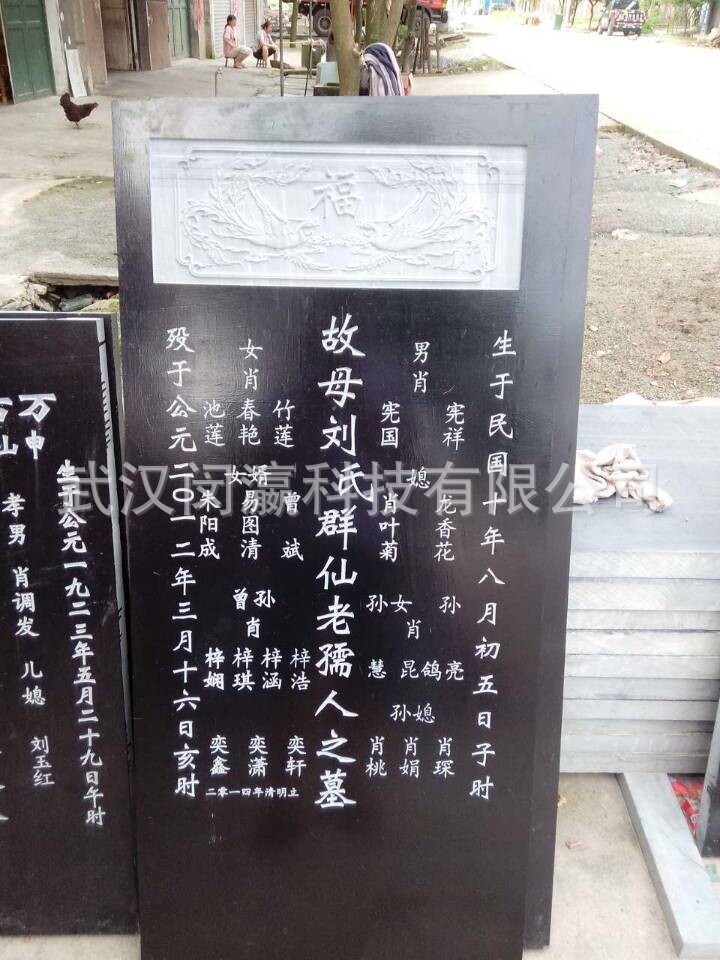 福
生于民国十年八月初五日子时
男肖
宪祥
宪国
媳
龙香花
肖叶菊
孙
孙女
肖
亮
鸽
昆
慧
孙媳
肖琛
肖娟
肖桃
故母刘氏群仙老孺人之墓
女肖
竹莲
春艳
池莲
女婿
曾斌
易图清
朱阳成
曾孙
肖
梓浩
梓涵
梓琪
梓娴
奕轩
奕潇
奕鑫
二零一四年清明立
殁于公元二〇一二年三月十六日亥时
生于公元一九二三年五月二十九日午时
万申
山
孝男
肖调发
儿媳
刘玉红
武汉闵瀛科技有限公司